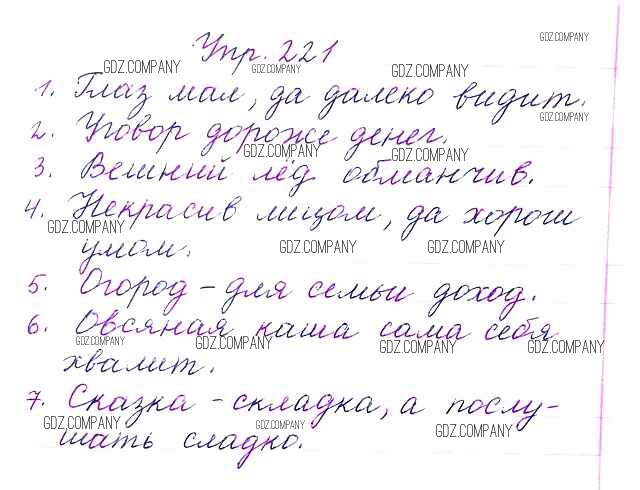 Упр. 221
GDZ.COMPANY
GDZ.COMPANY GDZ.COMPANY GDZ.COMPANY
1. Глаз мал, да далеко видит.
GDZ.COMPANY
2. Уговор дороже денег.
GDZ.COMPANY GDZ.COMPANY
3. Вешний лёд обманчив.
4. Некрасив лицом, да хорош
GDZ.COMPANY
умом.
GDZ.COMPANY GDZ.COMPANY
5. Огород – для семьи доход.
6. Овсяная каша сама себя
GDZ.COMPANY GDZ.COMPANY GDZ.COMPANY GDZ.COMPANY
хвалит.
7. Сказка – складка, а послу-
GDZ.COMPANY GDZ.COMPANY GDZ.COMPANY
шать сладко.